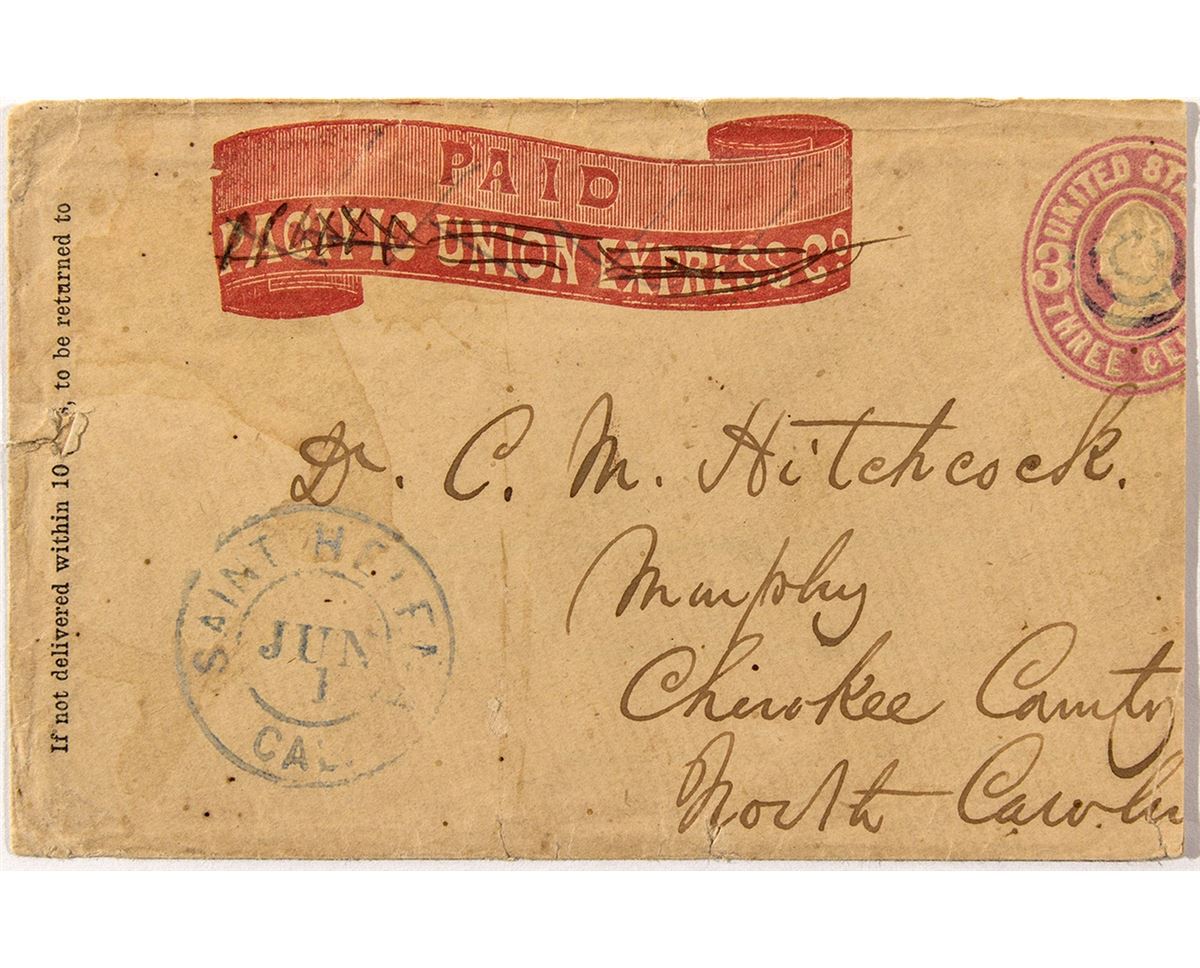 PAID
PACIFIC UNION EXPRESS Co
UNITED STA
3 3
THREE CE
If not delivered within 10 s, to be returned to
Dr. C. M. Hitchcock.
Murphy
Cherokee County
North Carolin
SAINT HELENA
JUN
1
CAL.